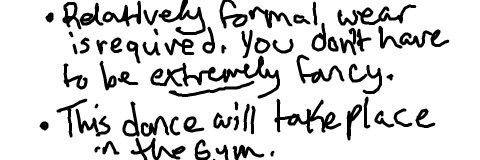 • Relatively formal wear
is required. You don't have
to be extremely fancy.
• This dance will take place
in the Gym.